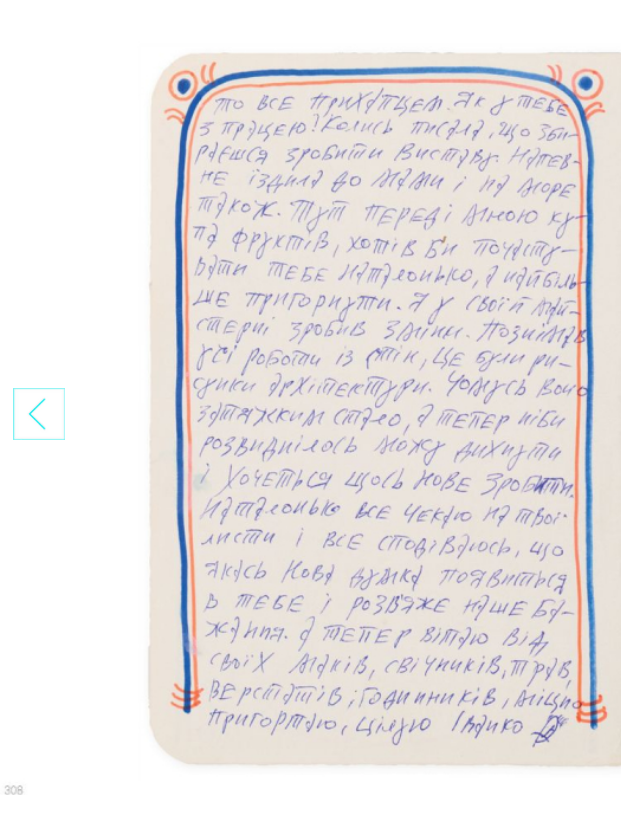 то все прихапцем. Як у тебе
з працею? Колись писала, що зби-
раєшся зробити виставу. Напев-
не їздила до мами і на море
також. Тут переді мною ку-
па фруктів, хотів би почасту-
вати тебе Наталонько, а найбіль-
ше пригорнути. Я у своїй май-
стерні зробив зміни. Познімав
усі роботи із стін, це були ри-
сунки архітектури. Чомусь воно
затяжким стало, а тепер ніби
розвиднілось можу дихнути
і хочеться щось нове зробити.
Наталонько все чекаю на твої
листи і все сподіваюсь, що
якась нова думка появиться
в тебе і розв'яже наше ба-
жання. А тепер вітаю від
своїх маків, свічників, трав,
верстатів, годинників, міцно
пригортаю, цілую Івано
308